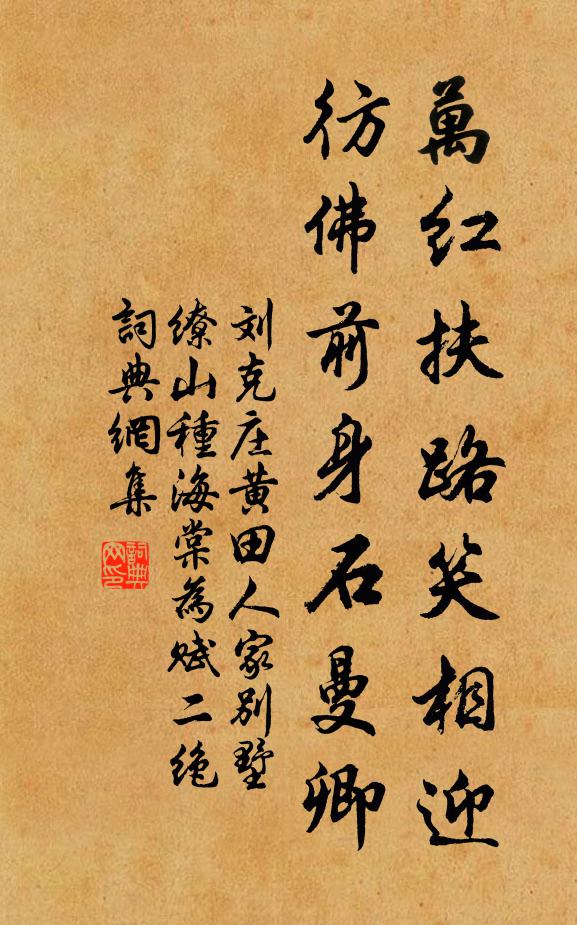 萬红扶路笑相迎
彷佛前身石曼卿
刘克庄黄田人家别墅
缭山種海棠為赋二绝
詞典網集
詞典
网印